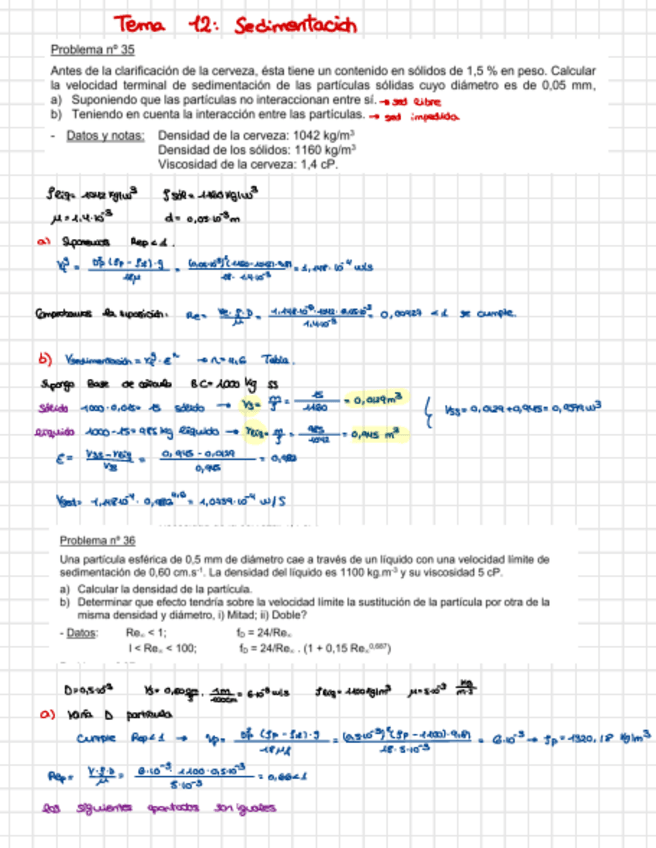 Tema 12: Sedimentación
Problema nº 35
Antes de la clarificación de la cerveza, ésta tiene un contenido en sólidos de 1,5 % en peso. Calcular
la velocidad terminal de sedimentación de las partículas sólidas cuyo diámetro es de 0,05 mm,
a) Suponiendo que las partículas no interaccionan entre sí. → sed libre
b) Teniendo en cuenta la interacción entre las partículas. → sed impedida
- Datos y notas: Densidad de la cerveza: 1042 kg/m³
Densidad de los sólidos: 1160 kg/m³
Viscosidad de la cerveza: 1,4 cP.
ρliq = 1042 kg/m³ ρsól = 1160 kg/m³
μ = 1,4·10⁻³ d = 0,05·10⁻³ m
a) Suponemos Rep < 1.
= 1,148·10⁻⁴ m/s
Comprobamos la suposición: Re = = 0,00427 < 1 se cumple.
b) Vsedimentación = · εⁿ → n = 4,6 Tabla.
Supongo Base de cálculo BC = 1000 kg SS
Sólido 1000·0,015 = 15 sólido → Vs = m/ρ = 15/1160 = 0,0129 m³
Líquido 1000-15 = 985 kg líquido → Vliq = m/ρ = 985/1042 = 0,945 m³
Vss = 0,0129 + 0,945 = 0,9579 m³
ε = = (0,945 - 0,0129)/0,945 =
Vsed = 1,148·10⁻⁴ · = 1,0739·10⁻⁴ m/s
Problema nº 36
Una partícula esférica de 0,5 mm de diámetro cae a través de un líquido con una velocidad límite de
sedimentación de 0,60 cm.s⁻¹. La densidad del líquido es 1100 kg.m⁻³ y su viscosidad 5 cP.
a) Calcular la densidad de la partícula.
b) Determinar que efecto tendría sobre la velocidad límite la sustitución de la partícula por otra de la
misma densidad y diámetro, i) Mitad; ii) Doble?
- Datos: Re∞ < 1; fD = 24/Re∞
l < Re∞ < 100; fD = 24/Re∞ . (1 + 0,15 Re∞^0,687)
D = 0,5·10⁻³ = 6·10⁻³ m/s ρliq = 1100 kg/m³ μ = 5·10⁻³ kg/m·s
a) Varía D partícula
Cumple Rep < 1 → = 6·10⁻³ → ρp = 1320,18 kg/m³
Rep = V·ρ·D/μ = (6·10⁻³ · 1100 · 0,5·10⁻³)/(5·10⁻³) = 0,66 < 1
los siguientes apartados son iguales